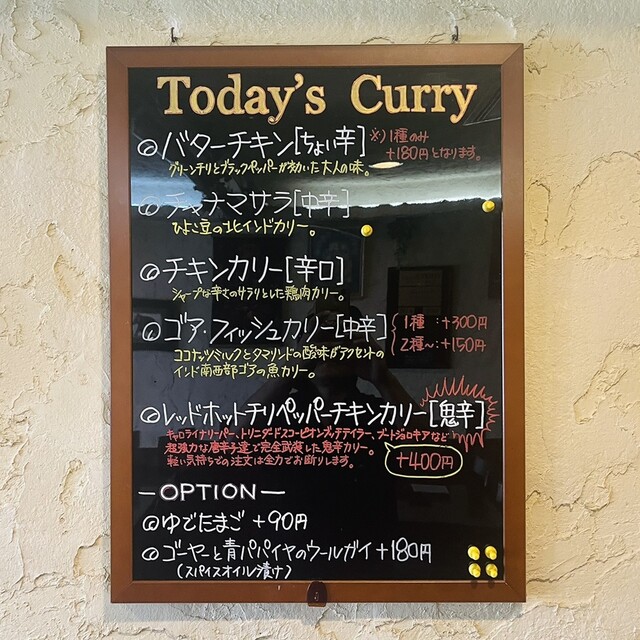 Today's Curry
◎バターチキン[ちょい辛] ※)1種のみ
+180円となります。
グリーンチリとブラックペッパーが効いた大人の味。
◎チャナマサラ[中辛]
ひよこ豆の北インドカリー。
◎チキンカリー[辛口]
シャープな辛さのサラリとした鶏肉カリー。
◎ゴア・フィッシュカリー[中辛] 1種:+300円
2種~:+150円
ココナッツミルクとタマリンドの酸味がアクセントの
インド南西部ゴアの魚カリー。
◎レッドホットチリペッパーチキンカリー[鬼辛]
キャロライナリーパー、トリニダードスコーピオンブッチテイラー、ブートジョロキアなど
超強力な唐辛子達で完全武装した鬼辛カリー。
軽い気持ちでの注文は全力でお断りします。
+400円
—OPTION—
◎ゆでたまご +90円
◎ゴーヤーと青パパイヤのウールガイ +180円
(スパイスオイル漬け)